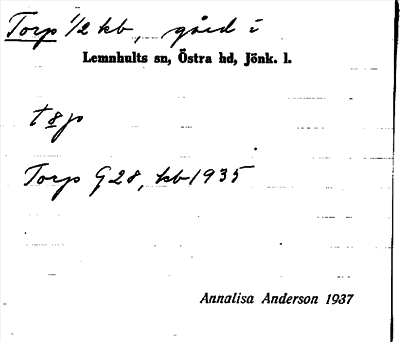 Torp 1/2 kb, gård i
Lemnhults sn, Östra hd, Jönk. l.
t 8 p
Torp G28, kb 1935
Annalisa Anderson 1937